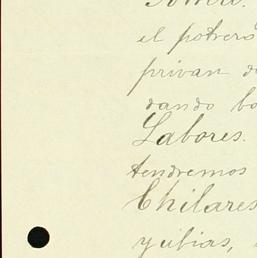 el potrero
privan d
dando bo
Labores.
tendremos
Chilares
y ubias,